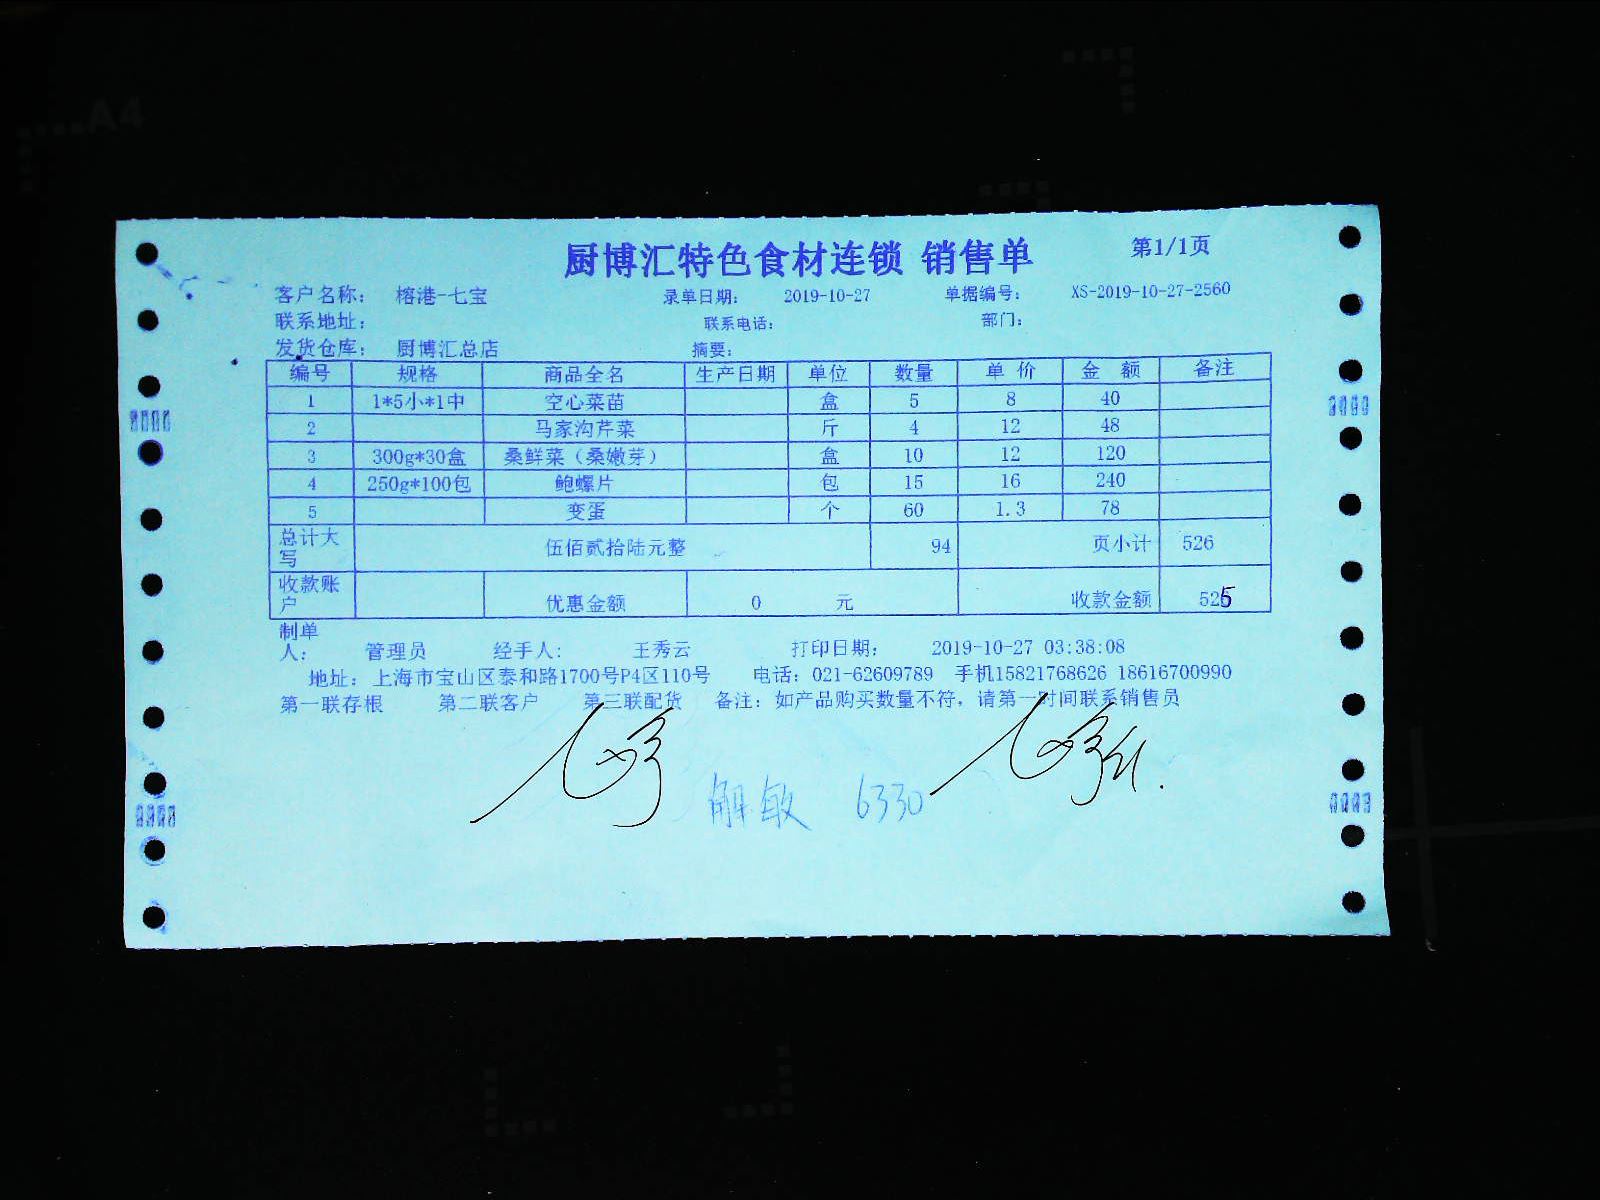 厨博汇特色食材连锁 销售单 第1/1页
客户名称： 榕港-七宝 录单日期： 2019-10-27 单据编号： XS-2019-10-27-2560
联系地址： 联系电话： 部门：
发货仓库： 厨博汇总店 摘要：
编号 规格 商品全名 生产日期 单位 数量 单 价 金 额 备注
1 1*5小*1中 空心菜苗 盒 5 8 40
2 马家沟芹菜 斤 4 12 48
3 300g*30盒 桑鲜菜（桑嫩芽） 盒 10 12 120
4 250g*100包 鲍螺片 包 15 16 240
5 变蛋 个 60 1.3 78
总计大写 伍佰贰拾陆元整 94 页小计 526
收款账户 优惠金额 0 元 收款金额 525
制单人： 管理员 经手人： 王秀云 打印日期： 2019-10-27 03:38:08
地址：上海市宝山区泰和路1700号P4区110号 电话：021-62609789 手机15821768626 18616700990
第一联存根 第二联客户 第三联配货 备注：如产品购买数量不符，请第一时间联系销售员
解敏 6330
A4